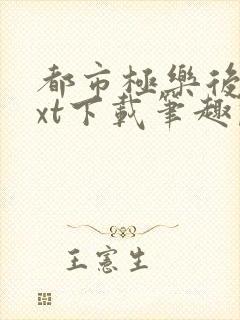 都市極樂後
xt下載筆趣
王憲生